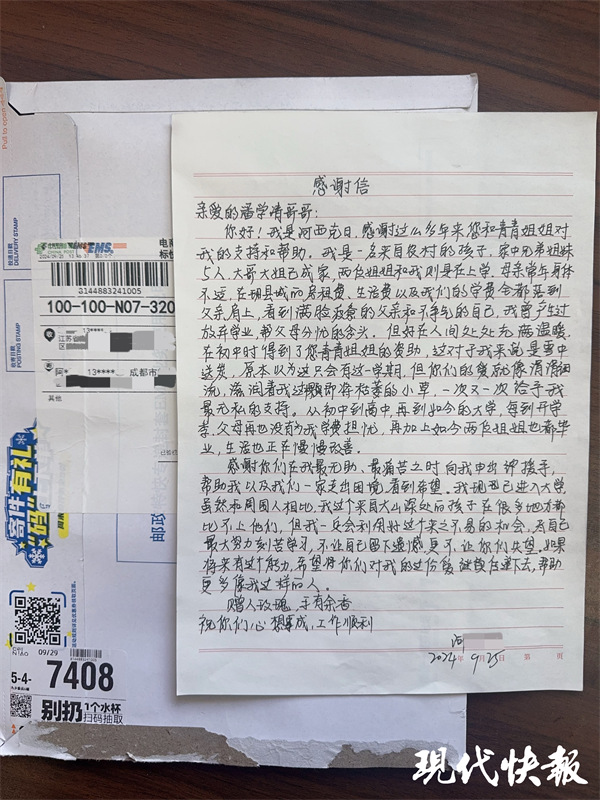 感谢信
亲爱的潘学清哥哥:
你好!我是阿西克日,感谢这么多年来您和青青姐姐对
我的支持和帮助。我是一名来自农村的孩子,家中兄弟姐妹
5人,大哥大姐已成家,两位姐姐和我则是在上学,母亲常年身体
不适,在明县城的房租费、生活费以及我们的学费全都落到
父亲肩上,看到满脸疲惫的父亲和争气的自己,我曾产生过
放弃学业,帮父母分忧的念头。但好在人间处处充满温暖,
在初中时得到了您青青姐姐的资助,这对于我来说是雪中
送炭,原本以为这只会有这一学期,但你们的爱就像涓涓细
流,滋润着我这颗即将枯萎的小草,一次又一次给予我
最无私的支持。从初中到高中,再到如今的大学,每到开学
季,父母再也没有为我学费担忧,再加上如今两位姐姐也都毕
业,生活也正在慢慢改善。
感谢你们在我最无助、最痛苦之时向我伸出援手,
帮助我以及我们一家走出困境,看到希望。我现如已进入大学,
虽然和周围人相比,我这个来自大山深处的孩子在很多地方都
比不上他们,但我一定会利用好这个来之不易的机会,尽自己
最大努力刻苦学习,不让自己留下遗憾更不让你们失望。如果
将来有这个能力,希望将你们对我的这份爱继续传递下去,帮助
更多像我这样的人。
赠人玫瑰,手有余香
祝你们心想事成,工作顺利
阿
2024年9月25日 第 页
EMS
电商
标
3144883241005
100-100-N07-320
江苏省
区
13****
阿* 13**** 成都市
其他
DELIVERY STAMP
POSTING STAMP
寄件有礼
“码”
邮政
09/29
5-4-
7408
别扔
1个水杯
扫码抽取
现代快報